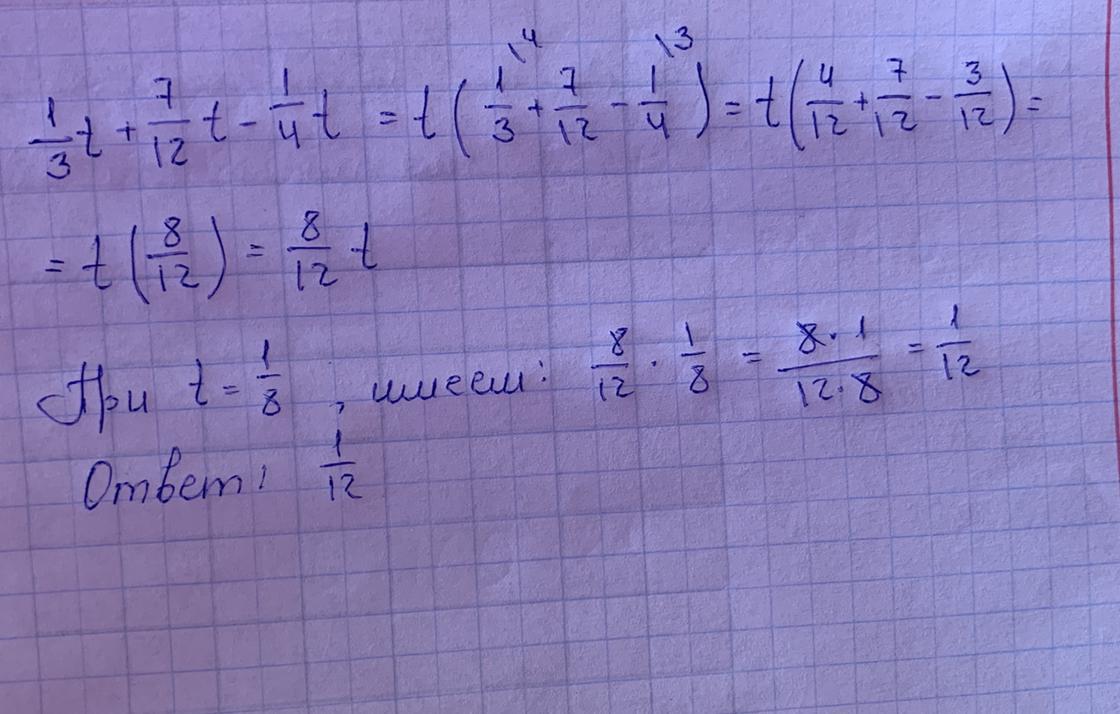 1/3 t + 7/12 t - 1/4 t = t ( 1/3 \4 + 7/12 - 1/4 \3 ) = t ( 4/12 + 7/12 - 3/12 ) =
= t ( 8/12 ) = 8/12 t
При t = 1/8 , имеем: 8/12 · 1/8 = 8·1/12·8 = 1/12
Ответ: 1/12